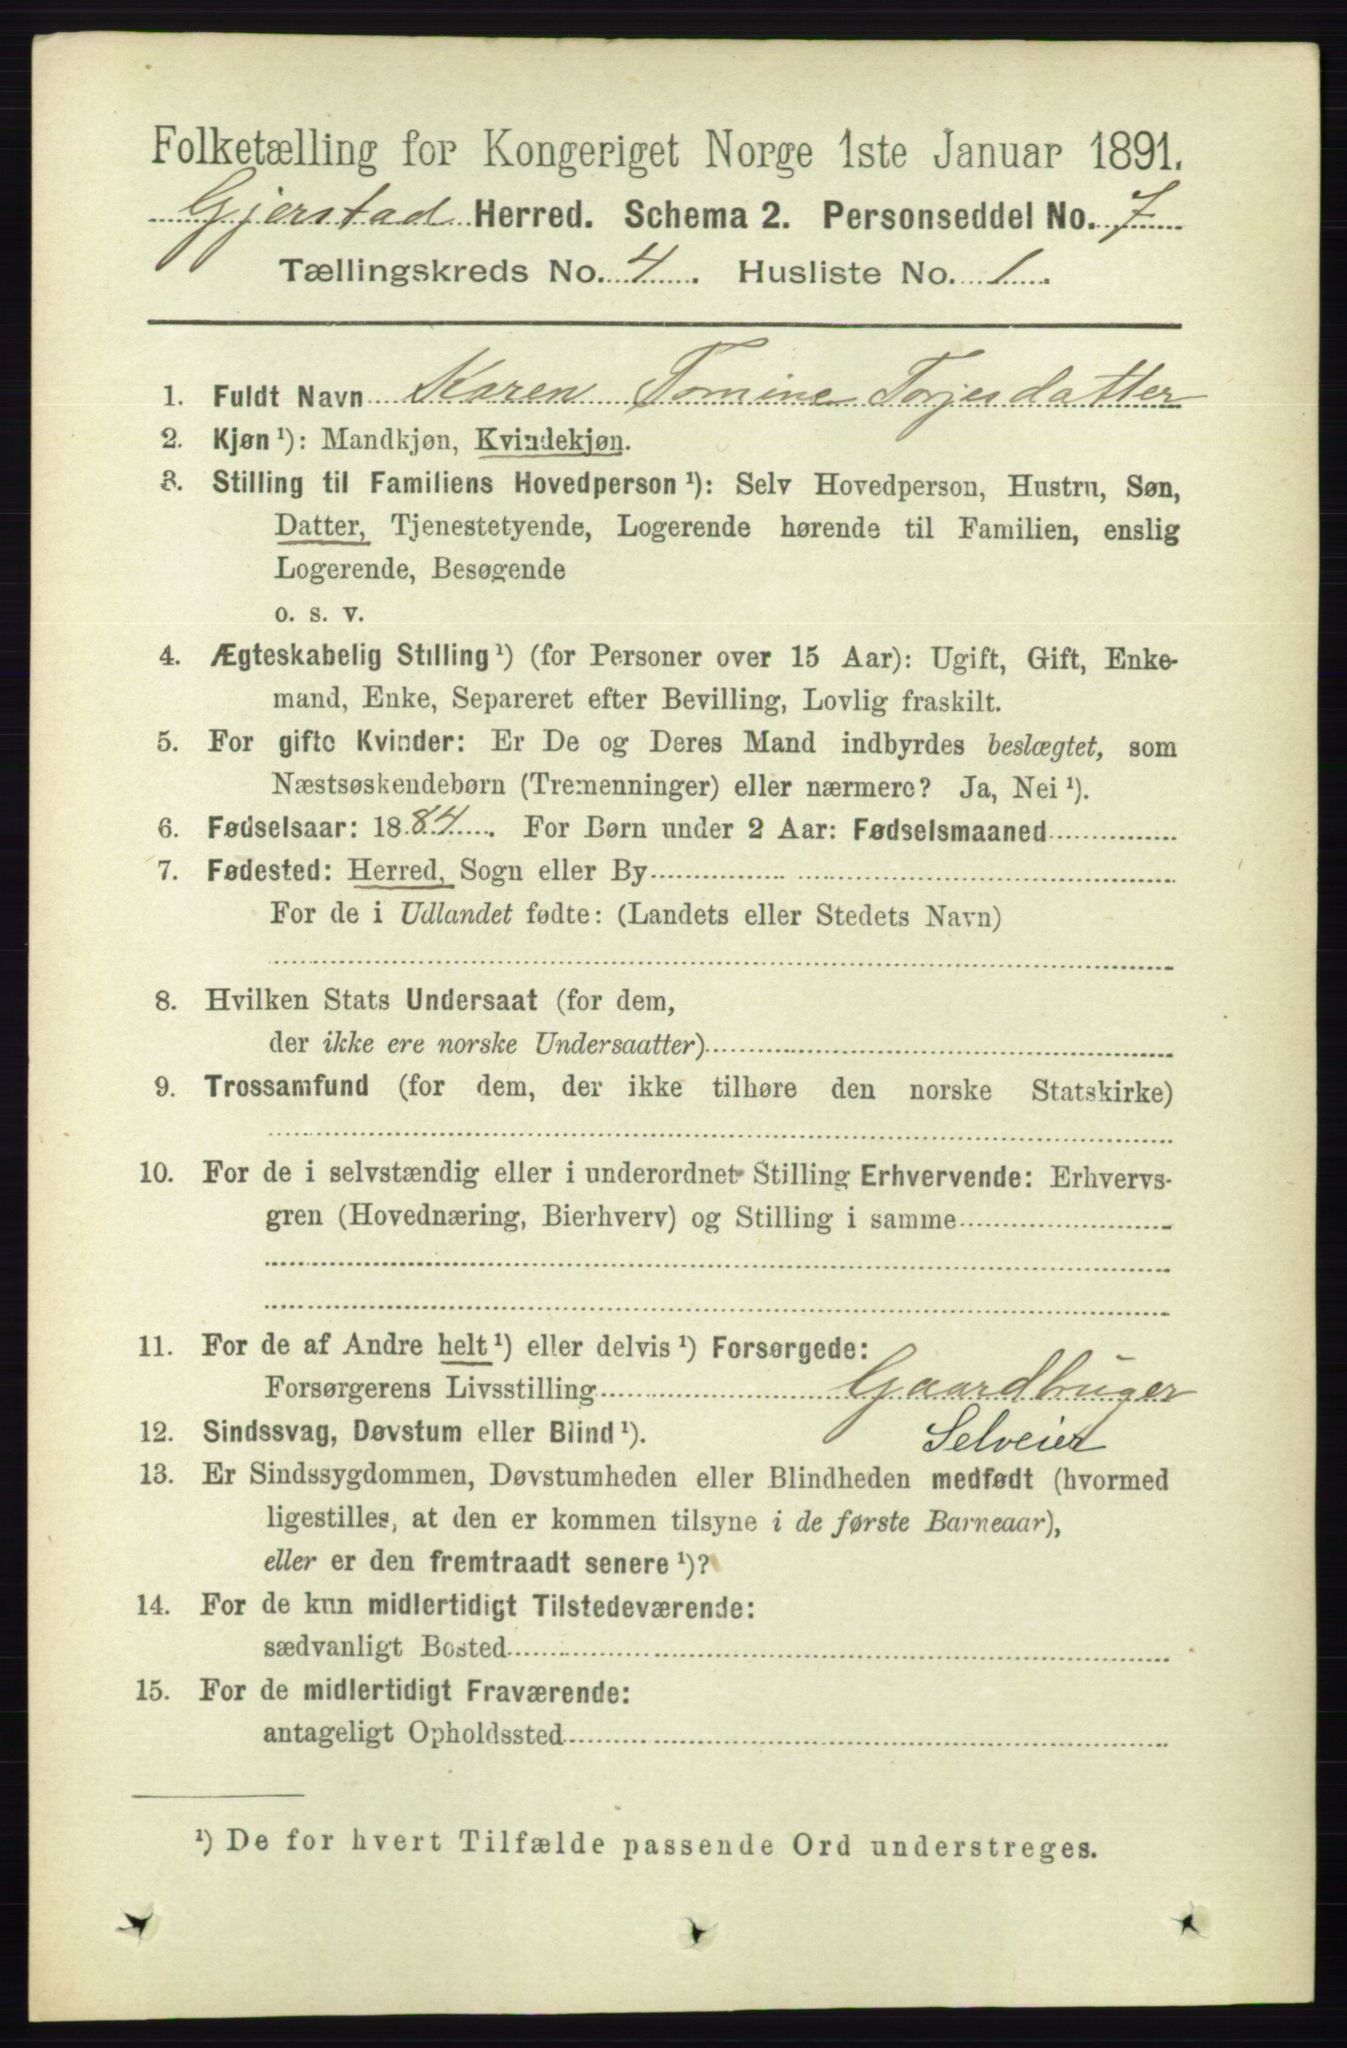 Folketælling for Kongeriget Norge 1ste Januar 1891.
Gjerstad Herred. Schema 2. Personseddel No. 7
Tællingskreds No. 4. Husliste No. 1.
1. Fuldt Navn Karen Tomine Torjesdatter
2. Kjøn ¹): Mandkjøn, Kvindekjøn.
3. Stilling til Familiens Hovedperson ¹): Selv Hovedperson, Hustru, Søn,
Datter, Tjenestetyende, Logerende hørende til Familien, enslig
Logerende, Besøgende
o. s. v.
4. Ægteskabelig Stilling ¹) (for Personer over 15 Aar): Ugift, Gift, Enke-
mand, Enke, Separeret efter Bevilling, Lovlig fraskilt.
5. For gifte Kvinder: Er De og Deres Mand indbyrdes beslægtet, som
Næstsøskendebørn (Tremenninger) eller nærmere? Ja, Nei ¹).
6. Fødselsaar: 1884. For Børn under 2 Aar: Fødselsmaaned
7. Fødested: Herred, Sogn eller By
For de i Udlandet fødte: (Landets eller Stedets Navn)
8. Hvilken Stats Undersaat (for dem,
der ikke ere norske Undersaatter)
9. Trossamfund (for dem, der ikke tilhøre den norske Statskirke)
10. For de i selvstændig eller i underordnet Stilling Erhvervende: Erhvervs-
gren (Hovednæring, Bierhverv) og Stilling i samme
11. For de af Andre helt ¹) eller delvis ¹) Forsørgede:
Forsørgerens Livsstilling Gaardbruger
12. Sindssvag, Døvstum eller Blind ¹). Selveier
13. Er Sindssygdommen, Døvstumheden eller Blindheden medfødt (hvormed
ligestilles, at den er kommen tilsyne i de første Barneaar),
eller er den fremtraadt senere ¹)?
14. For de kun midlertidigt Tilstedeværende:
sædvanligt Bosted
15. For de midlertidigt Fraværende:
antageligt Opholdssted
¹) De for hvert Tilfælde passende Ord understreges.